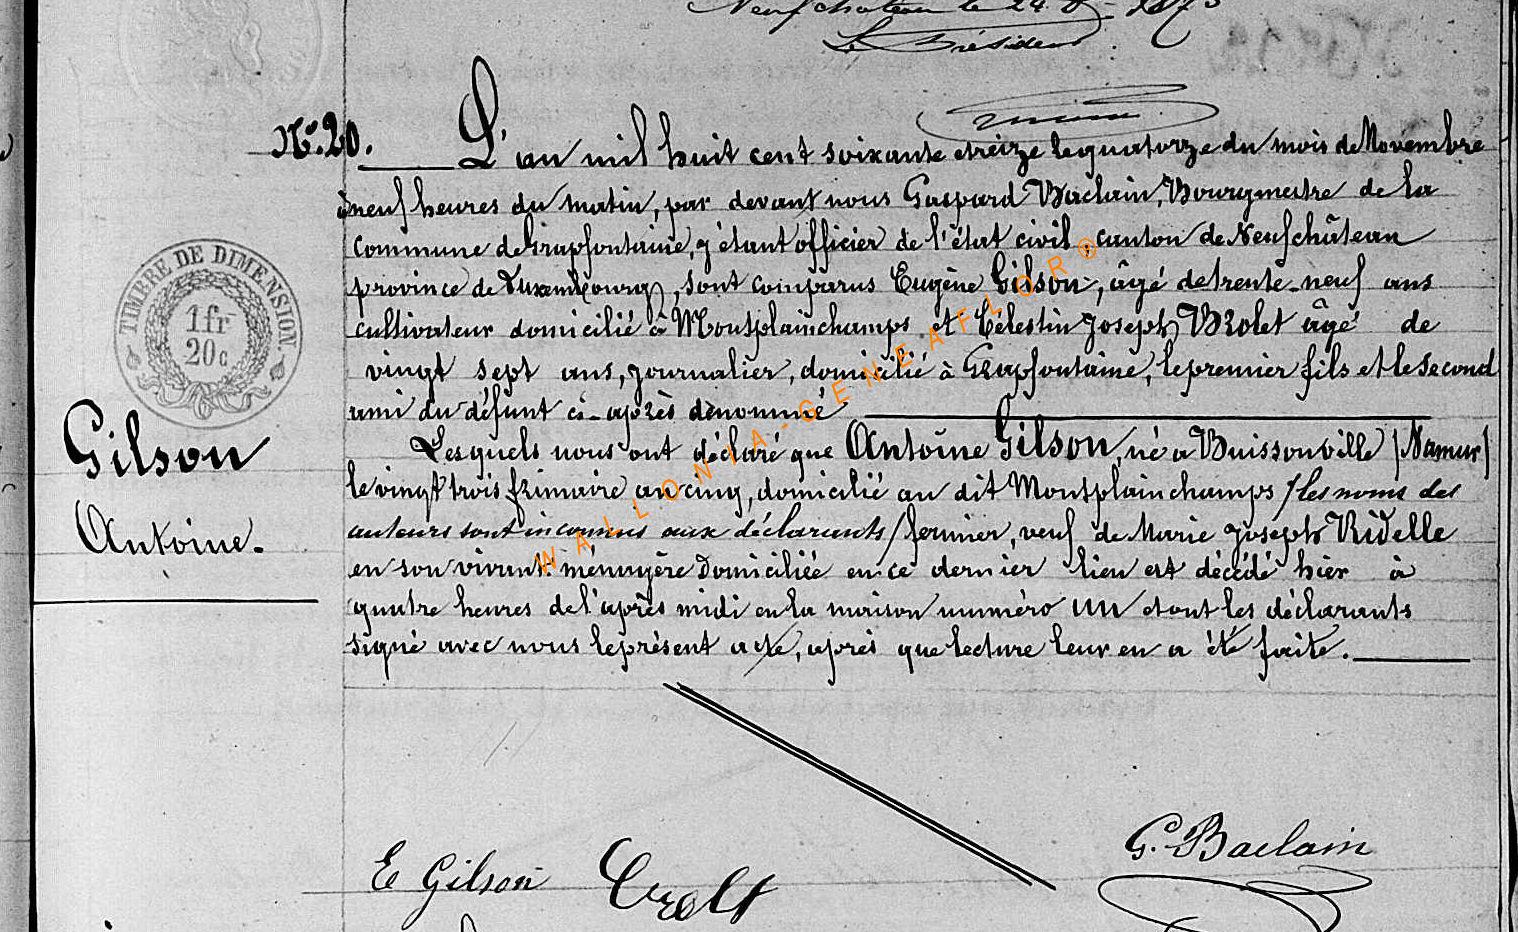 Neufchateau le 24
Le Président
N° 20.
L'an mil huit cent soixante et treize le quatorze du mois de Novembre
à neuf heures du matin, par devant nous Gaspard Baclain, Bourgmestre de la
commune de Grapfontaine, y étant officier de l'état civil, canton de Neufchâteau
province de Luxembourg, sont comparus Eugène Gilson, âgé de trente-neuf ans
cultivateur domicilié à Montplainchamps et Célestin Joseph Brolet âgé de
vingt sept ans, journalier, domicilié à Grapfontaine, le premier fils et le second
ami du défunt ci-après dénommé
Lesquels nous ont déclaré que Antoine Gilson, né a Buissonville /Namur/
le vingt trois frimaire an cinq, domicilié au dit Montplainchamps /les noms des
auteurs sont inconnus aux déclarants/ fermier, veuf de Marie Joseph Ridelle
en son vivant ménagère domiciliée en ce dernier lieu est décédé hier à
quatre heures de l'après midi en la maison numéro un et ont les déclarants
signé avec nous le présent acte, après que lecture leur en a été faite.
TIMBRE DE DIMENSION
1fr
20c
Gilson
Antoine.
WALLONIA-GENEAFLOR©
E Gilson
G. Baclain